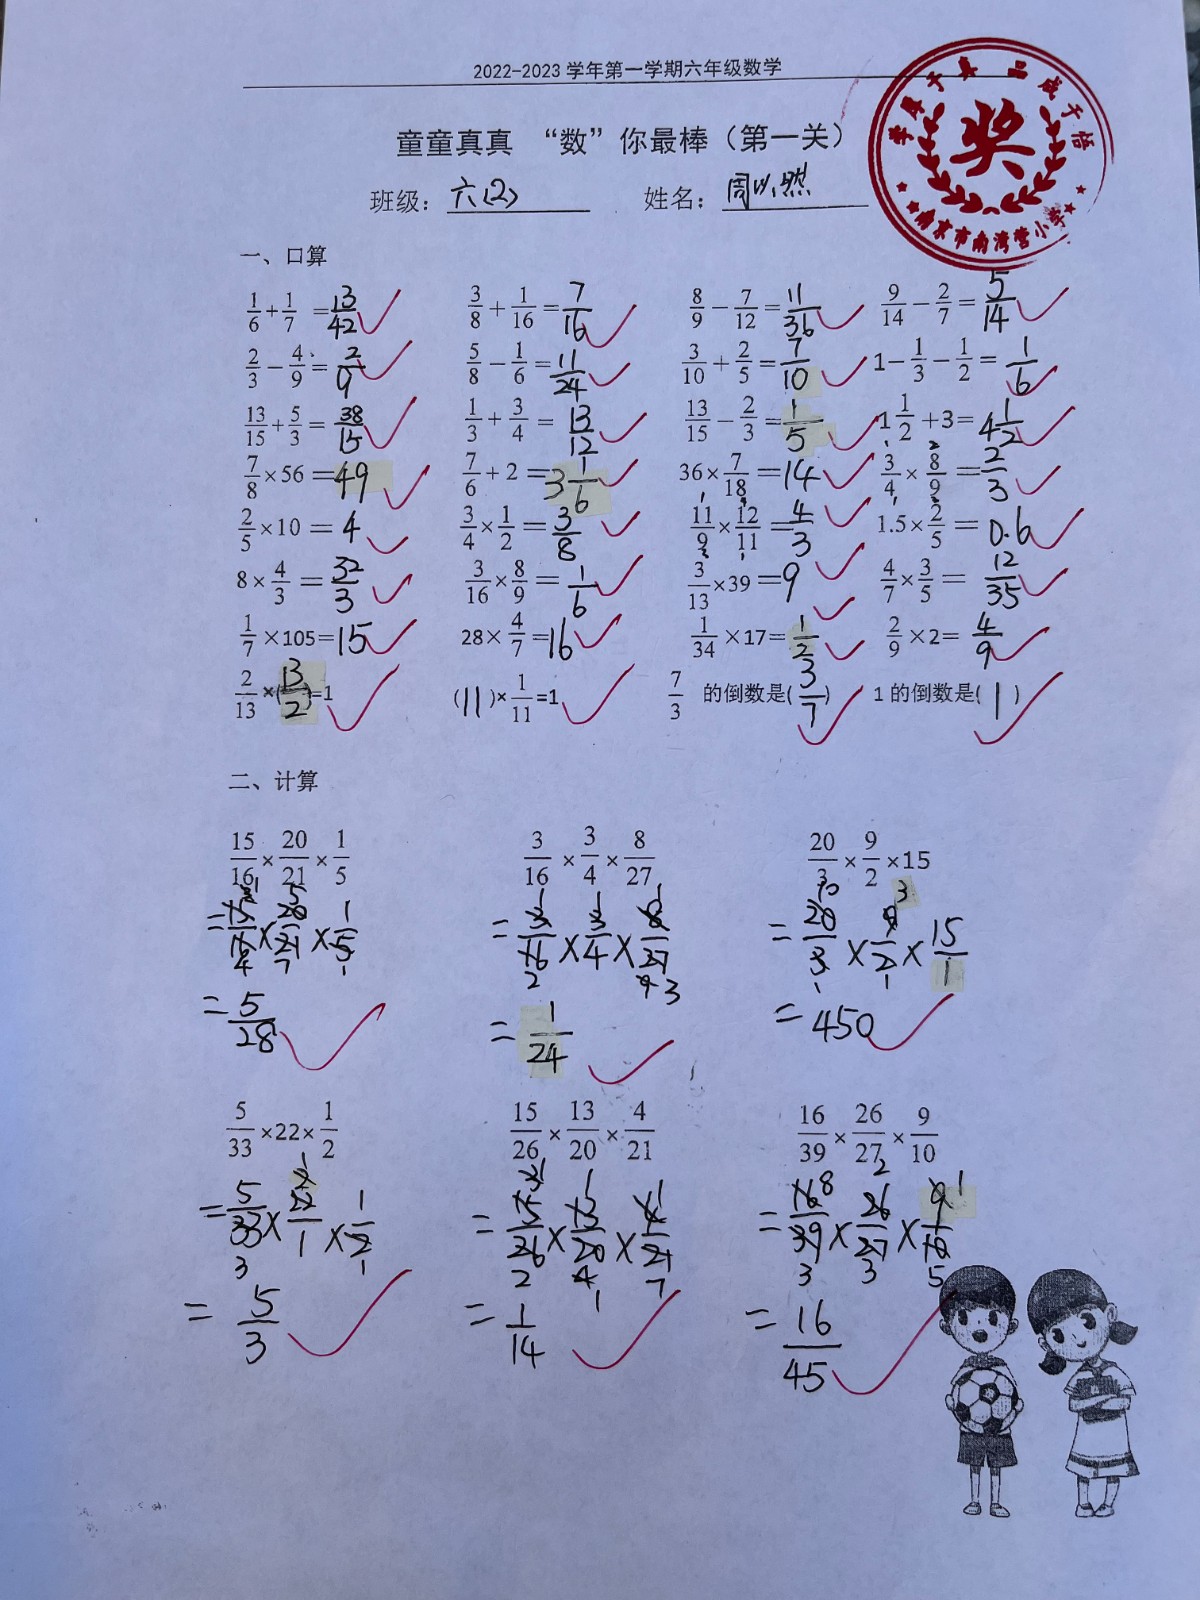 2022-2023 学年第一学期六年级数学
童童真真 “数”你最棒（第一关）
班级：六(2) 姓名：周以然
学启于真 品成于悟
奖
南京市南湾营小学
一、口算
1/6+1/7=13/42 3/8+1/16=7/16 8/9-7/12=11/36 9/14-2/7=5/14
2/3-4/9=2/9 5/8-1/6=11/24 3/10+2/5=7/10 1-1/3-1/2=1/6
13/15+5/3=38/15 1/3+3/4=13/12 13/15-2/3=1/5 1 1/2+3=4 1/2
7/8×56=49 7/6+2=3 1/6 36×7/18=14 3/4×8/9=2/3
2/5×10=4 3/4×1/2=3/8 11/9×12/11=4/3 1.5×2/5=0.6
8×4/3=32/3 3/16×8/9=1/6 3/13×39=9 4/7×3/5=12/35
1/7×105=15 28×4/7=16 1/34×17=1/2 2/9×2=4/9
2/13×(13/2)=1 (11)×1/11=1 7/3 的倒数是(3/7) 1 的倒数是(1)
二、计算
15/16×20/21×1/5 3/16×3/4×8/27 20/3×9/2×15
=15/16×20/21×1/5 =3/16×3/4×8/27 =20/3×9/2×15/1
=5/28 =1/24 =450
5/33×22×1/2 15/26×13/20×4/21 16/39×26/27×9/10
=5/33×22/1×1/2 =15/26×13/20×4/21 =16/39×26/27×9/10
=5/3 =1/14 =16/45